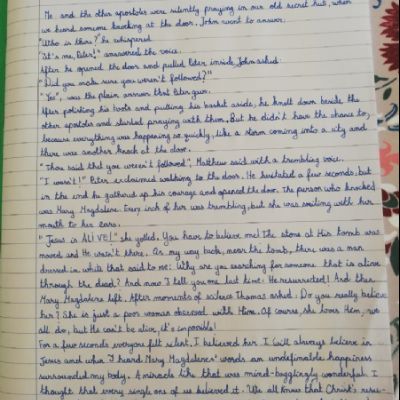 Me and the other apostoles were silently praying in our old secret hut, when
we heard someone knocking at the door. John went to answer.
"Who is there?" he whispered.
"It's me, Peter!" answered the voice.
After he opened the door and pulled Peter inside, John asked:
"Did you make sure you weren't followed?"
"Yes", was the plain answer that Peter gave.
After polishing his boots and putting his basket aside, he knelt down beside the
other apostoles and started praying with them. But he didn't have the chance to,
because everything was happening so quickly, like a storm coming into a city and
there was another knock at the door.
"Thou said that you weren't followed", Matthew said with a trembling voice.
"I wasn't!" Peter exclaimed walking to the door. He hesitated a few seconds, but
in the end he gathered up his courage and opened the door. The person who knocked
was Mary Magdalene. Every inch of her was trembling, but she was smiling with her
mouth to her ears.
"Jesus is ALIVE!" she yelled. You have to believe me! The stone at His tomb was
moved and He wasn't there. On my way back, near the tomb, there was a man
dressed in white that said to me: Why are you searching for someone that is alive
through the dead? And now I tell you one last time: He resurrected! And then
Mary Magdalene left. After moments of silence Thomas asked: Do you really believe
her? She is just a poor woman obsessed with Him. Of course she loves Him, we
all do, but He can't be alive, it's impossible!
For a few seconds everyone fell silent. I believed her. I will always believe in
Jesus and when I heard Mary Magdalene's words an undefinable happiness
surrounded my body. A miracle like that was mind-bogglingly wonderful. I
thought that every single one of us believed it. We all know that Christ's resu-